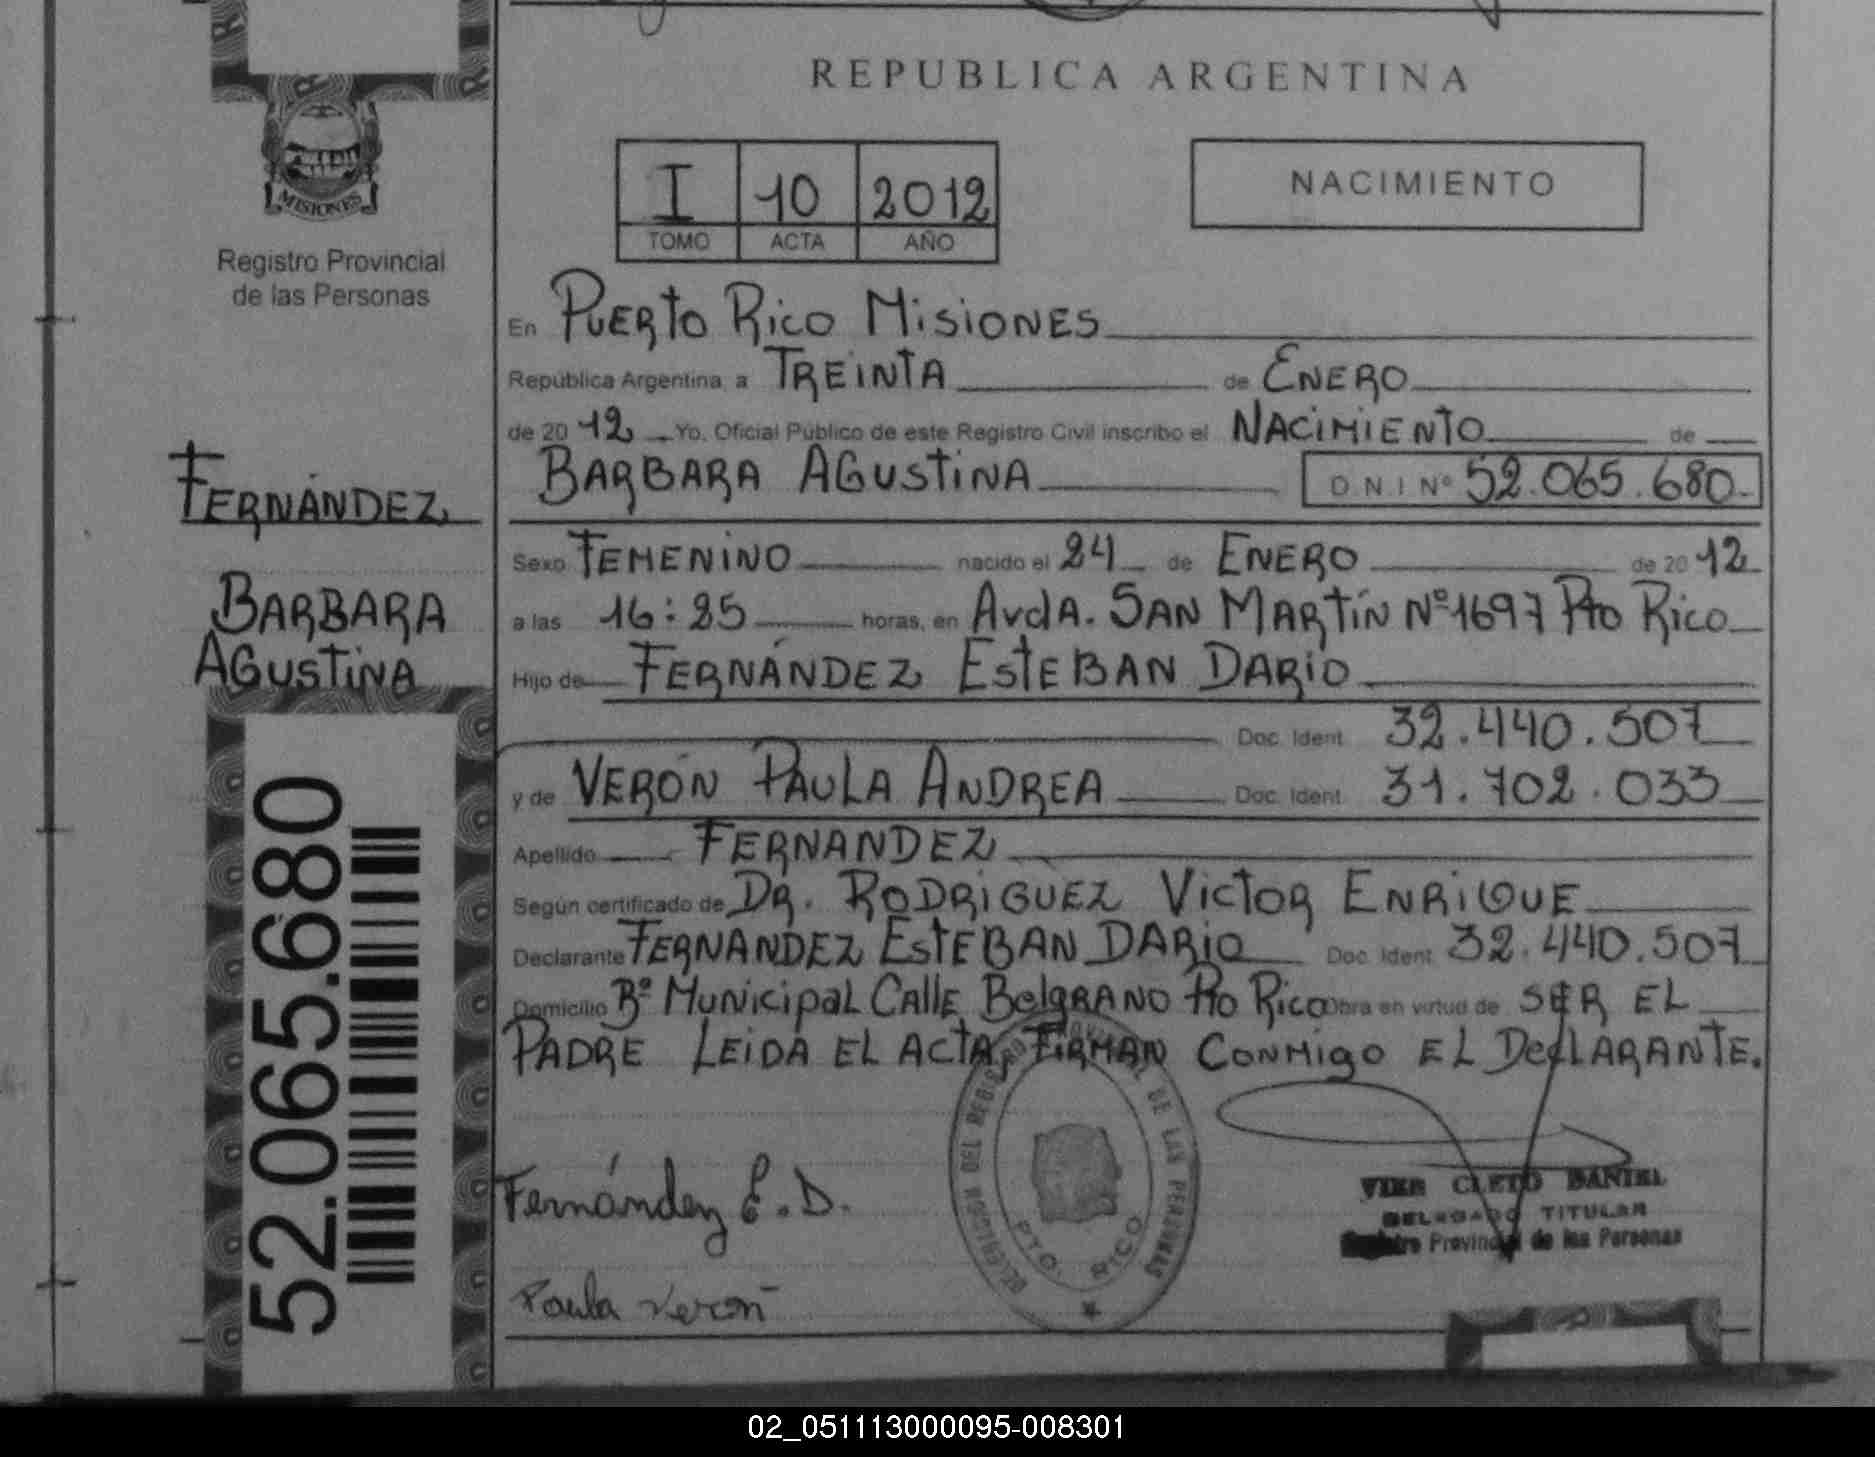 REPUBLICA ARGENTINA
MISIONES
Registro Provincial
de las Personas
I 10 2012
TOMO ACTA AÑO
NACIMIENTO
En PUERTO RICO MISIONES
República Argentina, a TREINTA de ENERO
de 2012 Yo, Oficial Público de este Registro Civil inscribo el NACIMIENTO de
BARBARA AGUSTINA D.N.I Nº 52.065.680
FERNÁNDEZ
BARBARA
AGUSTINA
52.065.680
Sexo FEMENINO nacido el 24 de ENERO de 2012
a las 16:25 horas, en AVDA. SAN MARTÍN Nº 1697 PTO RICO
Hijo de FERNÁNDEZ ESTEBAN DARIO
Doc. Ident. 32.440.507
y de VERÓN PAULA ANDREA Doc. Ident. 31.702.033
Apellido FERNANDEZ
Según certificado de DR. RODRIGUEZ VICTOR ENRIQUE
Declarante FERNANDEZ ESTEBAN DARIO Doc. Ident. 32.440.507
Domicilio Bº MUNICIPAL CALLE BELGRANO PTO RICO Obra en virtud de SER EL
PADRE LEIDA EL ACTA FIRMAN CONMIGO EL DECLARANTE.
DELEGACION DEL REGISTRO PROVINCIAL DE LAS PERSONAS
PTO. RICO
Fernández E.D.
Paula Verón
CLETO DANIEL
DELEGADO TITULAR
Registro Provincial de las Personas
02_051113000095-008301